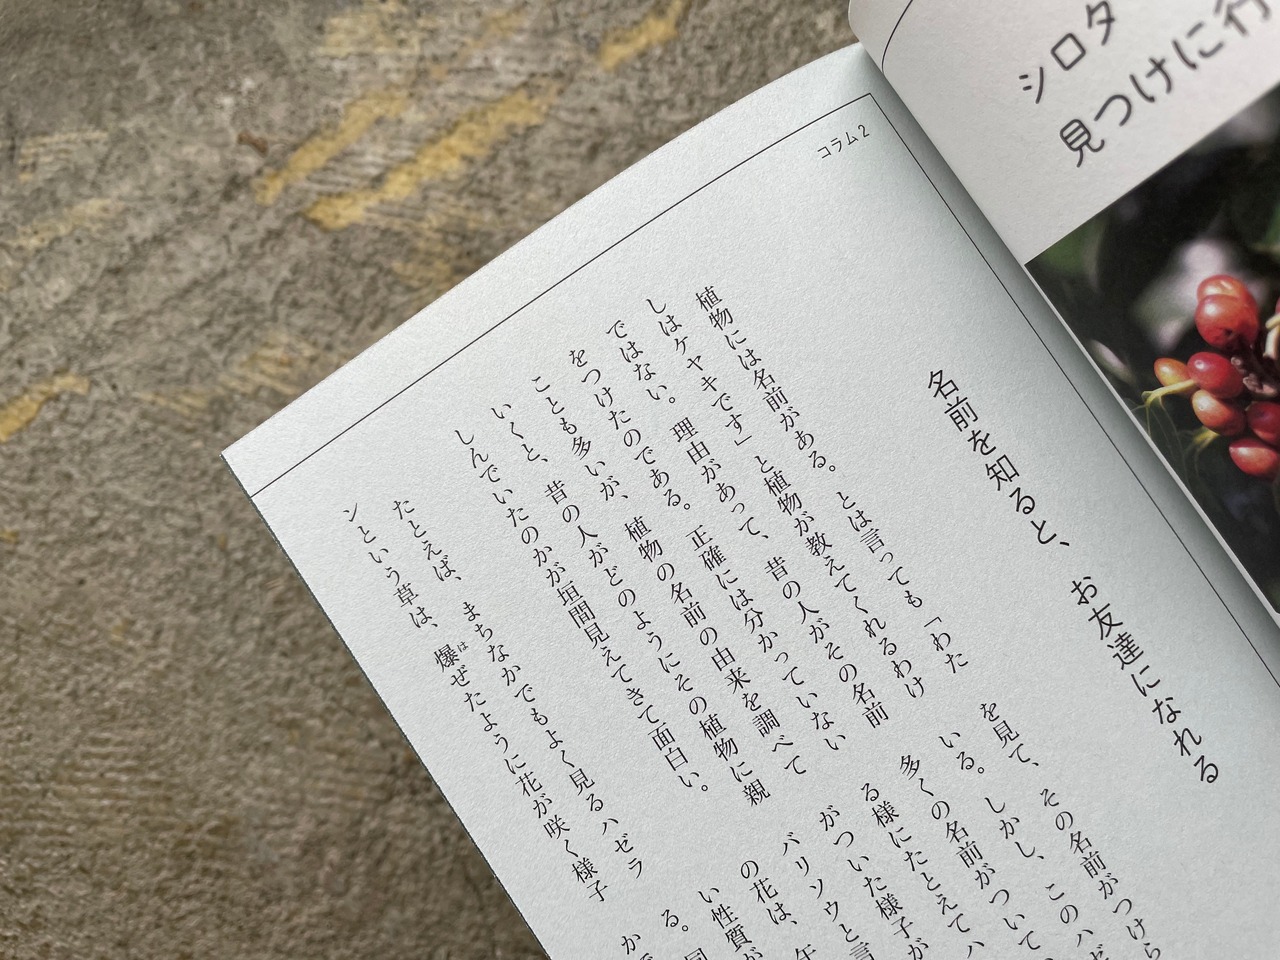 シロタ
見つけに行
コラム2
名前を知ると、お友達になれる
植物には名前がある。とは言っても「わた
しはケヤキです」と植物が教えてくれるわけ
ではない。理由があって、昔の人がその名前
をつけたのである。正確には分かっていない
ことも多いが、植物の名前の由来を調べて
いくと、昔の人がどのようにその植物に親
しんでいたのかが垣間見えてきて面白い。
たとえば、まちなかでもよく見るハゼラ
ンという草は、爆ぜたように花が咲く様子
は
を見て、その名前がつけら
いる。しかし、このハゼ
多くの名前がついて
る様にたとえてハ
がついた様子が
バリソウと言
の花は、午
い性質が
る。同
かで